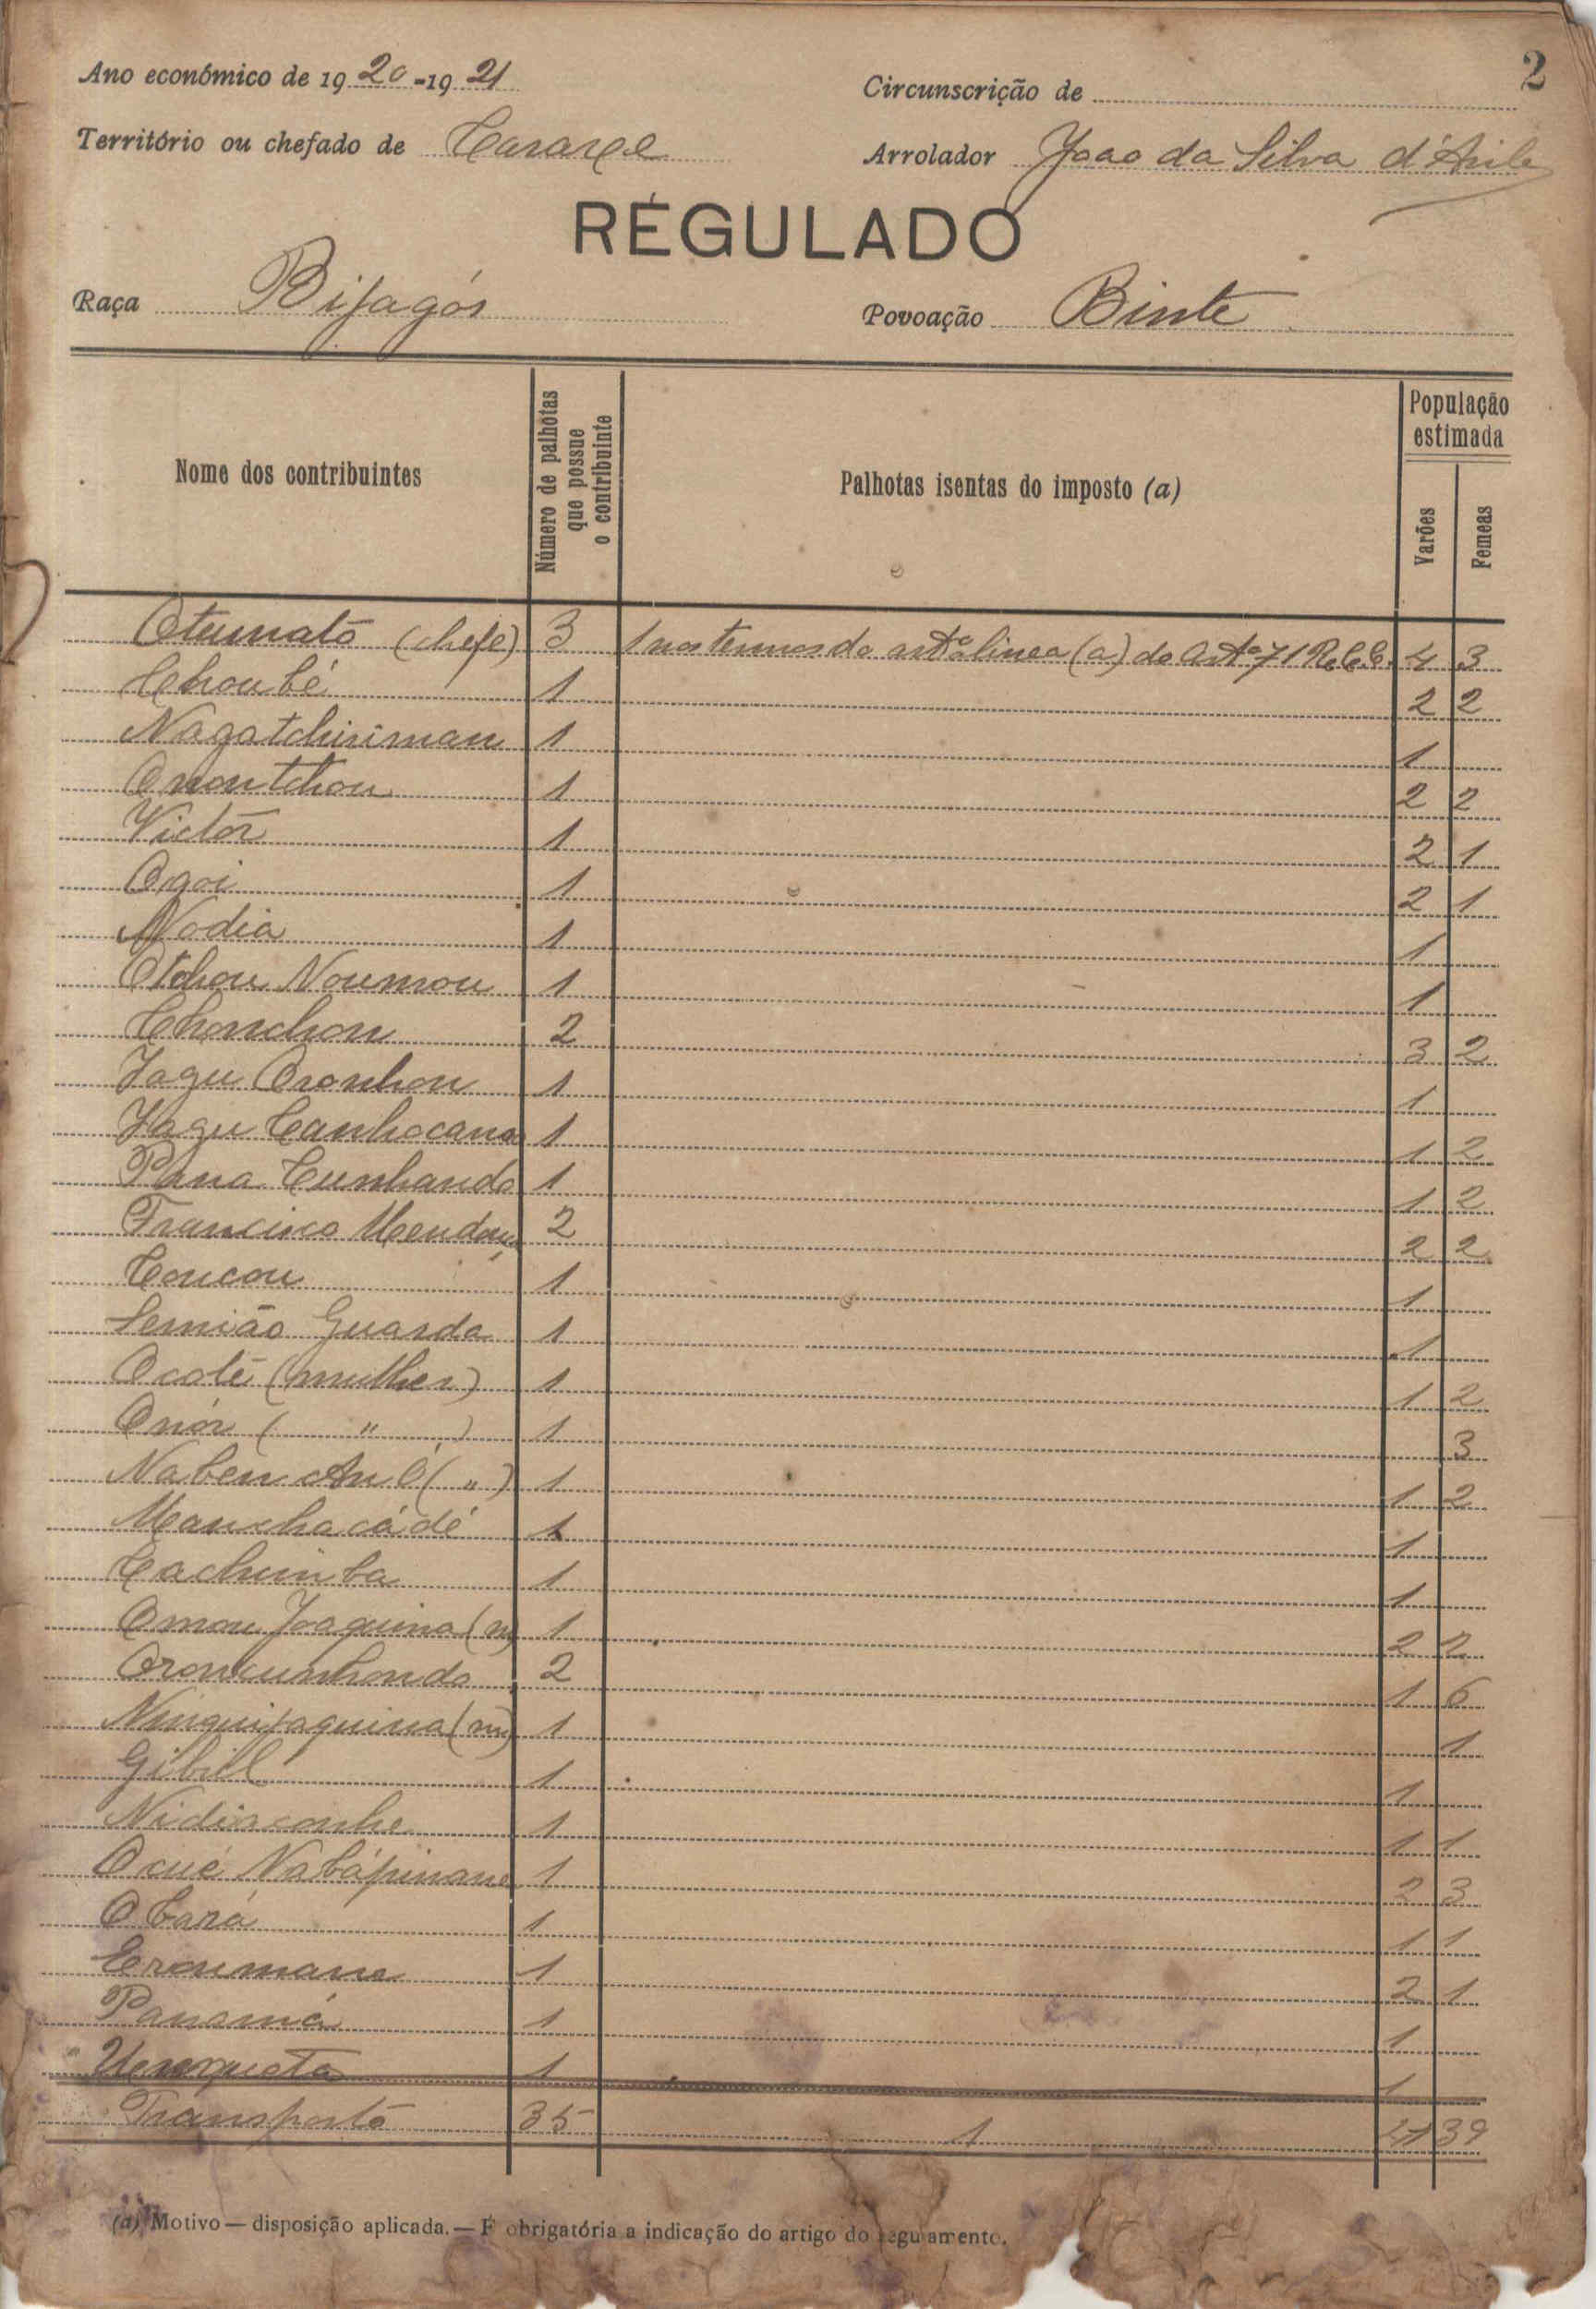 2
Ano económico de 1920-1921 Circunscrição de
Território ou chefado de Cararque Arrolador Joao da Silva d'Avila
REGULADO
Raça Bijagós Povoação Binte
Nome dos contribuintes Número de palhotas que possue o contribuinte Palhotas isentas do imposto (a) População estimada Varões Femeas
Otumató (chefe) 3 1 nos termos do alinea (a) do Artº 71 R.C.C. 4 3
Choubé 1 2 2
Nagatchiriman 1 1
Onontchou 1 2 2
Victór 1 2 1
Ogoi 1 2 1
Nodia 1 1
Otchou Noumou 1 1
Chonchon 2 3 2
Jagu Oronhou 1 1
Jagu Canhocano 1 1 2
Pana Cunhando 1 1 2
Francisco Mendonça 2 2 2
Coucou 1 1
Semião Guarda 1 1
Ocoté (mulher) 1 1 2
Onór ( " ) 1 3
Naben ( " ) 1 1 2
Manchacádé 1 1
Cachuinba 1 1
Omou Joaquina (m) 1 2 2
Oroncunhondo 2 1 6
Ninquijaquina (m) 1 1
Gibill 1 1
Nidiaconhe 1 1 1
Ocué Nabápinane 1 2 3
Obará 1 1 1
Croumane 1 2 1
Panamá 1 1
1 1
Transporto 35 1 41 39
(a) Motivo — disposição aplicada. — É obrigatória a indicação do artigo do regulamento.